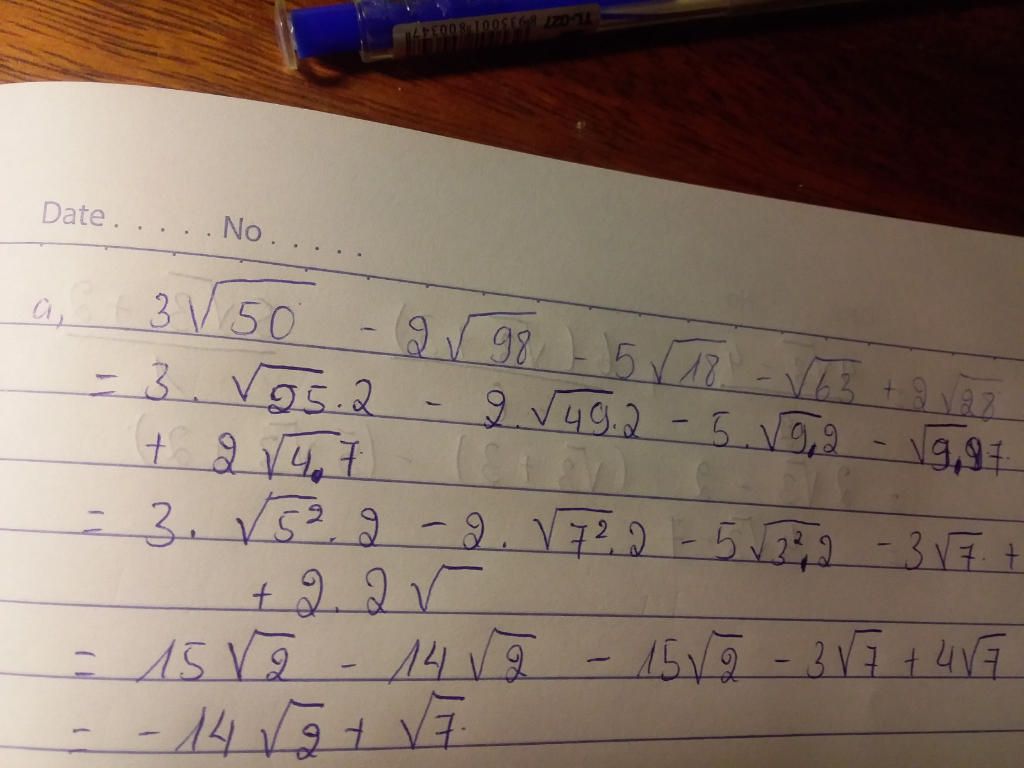 TL-027 8935001800347
Date..... No.....
a, 3√50 - 2√98 - 5√18 - √63 + 2√28
= 3. √25.2 - 2.√49.2 - 5.√9.2 - √9.7
+ 2√4.7
= 3. √5².2 - 2. √7².2 - 5√3².2 - 3√7 +
+ 2. 2√
= 15√2 - 14√2 - 15√2 - 3√7 + 4√7
= -14√2 + √7.